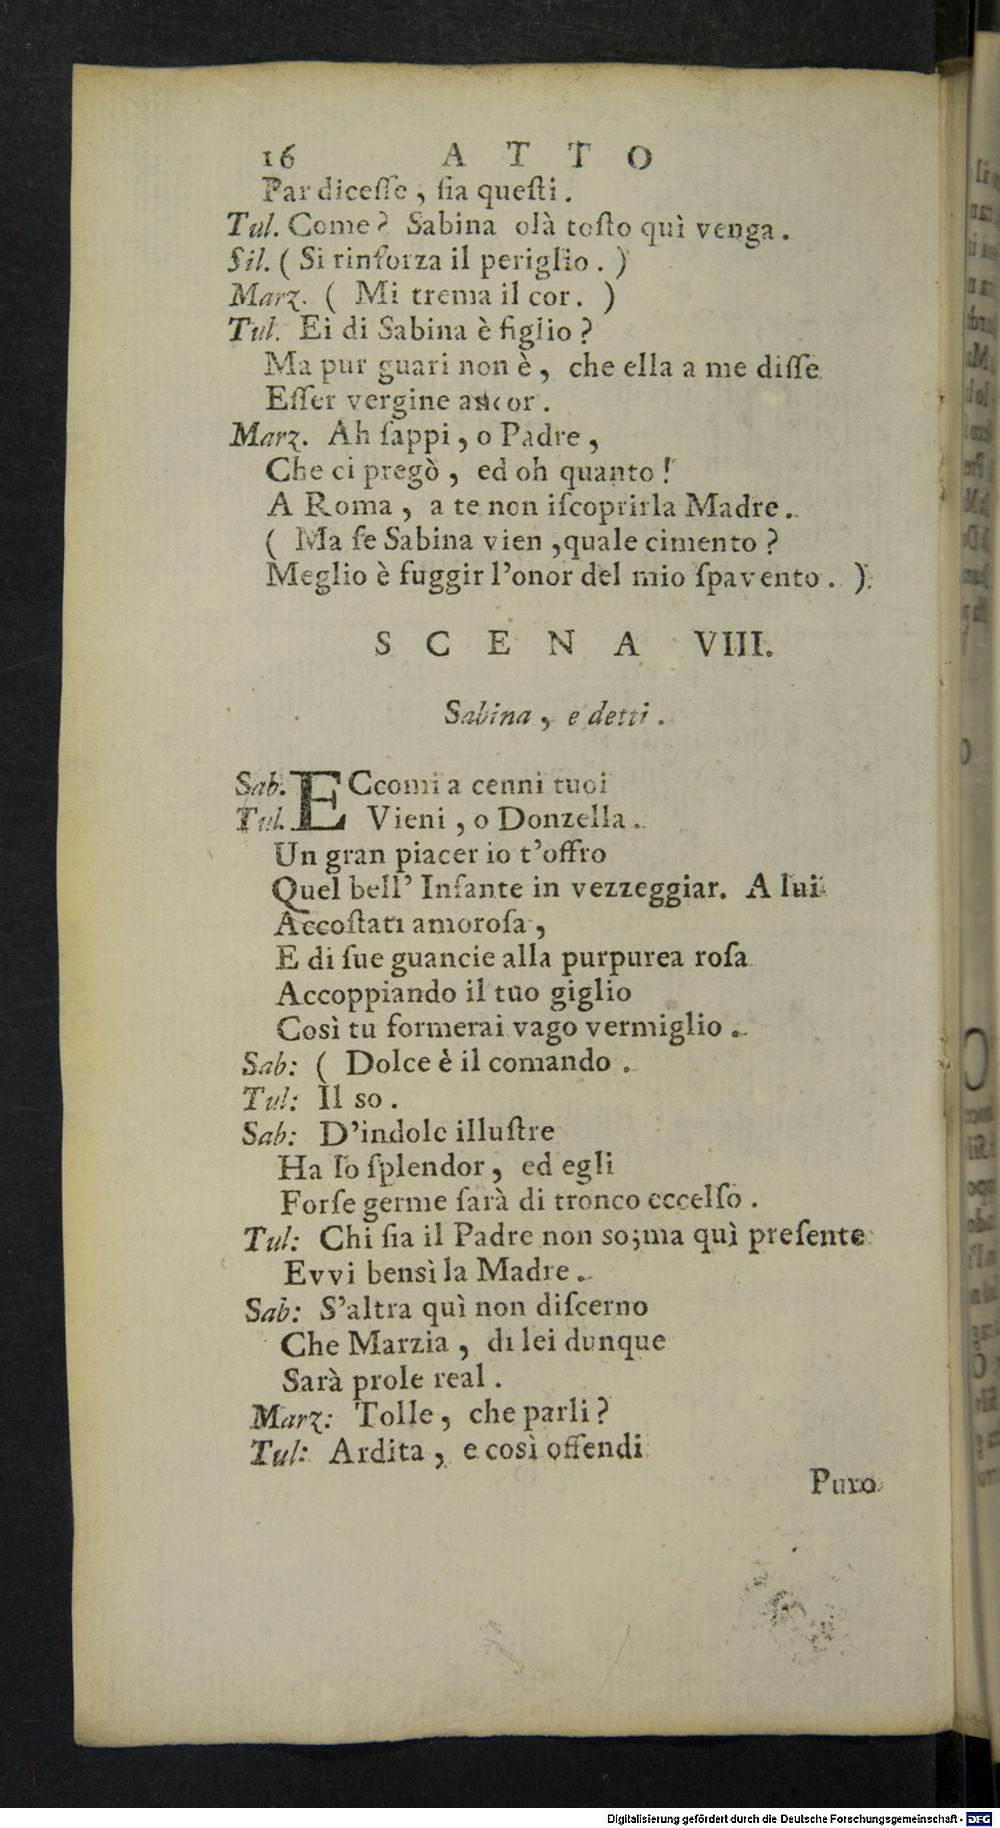 16 ATTO
Par dicesse, ſia queſti.
Tul. Come? Sabina olà toſto quì venga.
Sil. ( Si rinforza il periglio. )
Marz. ( Mi trema il cor. )
Tul. Ei di Sabina è figlio?
Ma pur guari non è, che ella a me diſſe
Eſſer vergine ancor.
Marz. Ah ſappi, o Padre,
Che ci pregò, ed oh quanto!
A Roma, a te non iſcoprirla Madre.
( Ma ſe Sabina vien, quale cimento?
Meglio è fuggir l'onor del mio ſpavento. )
SCENA VIII.
Sabina, e detti.
Sab. ECcomi a cenni tuoi
Tul. Vieni, o Donzella.
Un gran piacer io t'offro
Quel bell' Infante in vezzeggiar. A lui
Accoſtati amoroſa,
E di ſue guancie alla purpurea roſa
Accoppiando il tuo giglio
Così tu formerai vago vermiglio.
Sab: ( Dolce è il comando.
Tul: Il so.
Sab: D'indole illuſtre
Ha lo ſplendor, ed egli
Forſe germe ſarà di tronco eccelſo.
Tul: Chi ſia il Padre non so; ma quì preſente
Evvi bensì la Madre.
Sab: S'altra quì non diſcerno
Che Marzia, di lei dunque
Sarà prole real.
Marz: Tolle, che parli?
Tul: Ardita, e così offendi
Puro
Digitalisierung gefördert durch die Deutsche Forschungsgemeinschaft - DFG